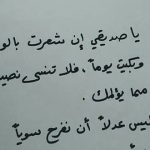 يا صديقي إن شعرت بالو
وبكيت يوماً، فلا تنسى نصيـ
مما يؤلمك.
ليس عدلاً أن نفرح سوياً